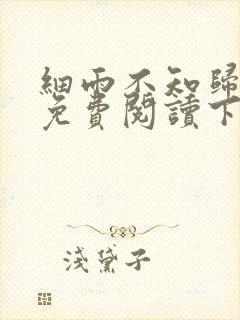 細雨不知歸
免費閱讀下
淺黛子